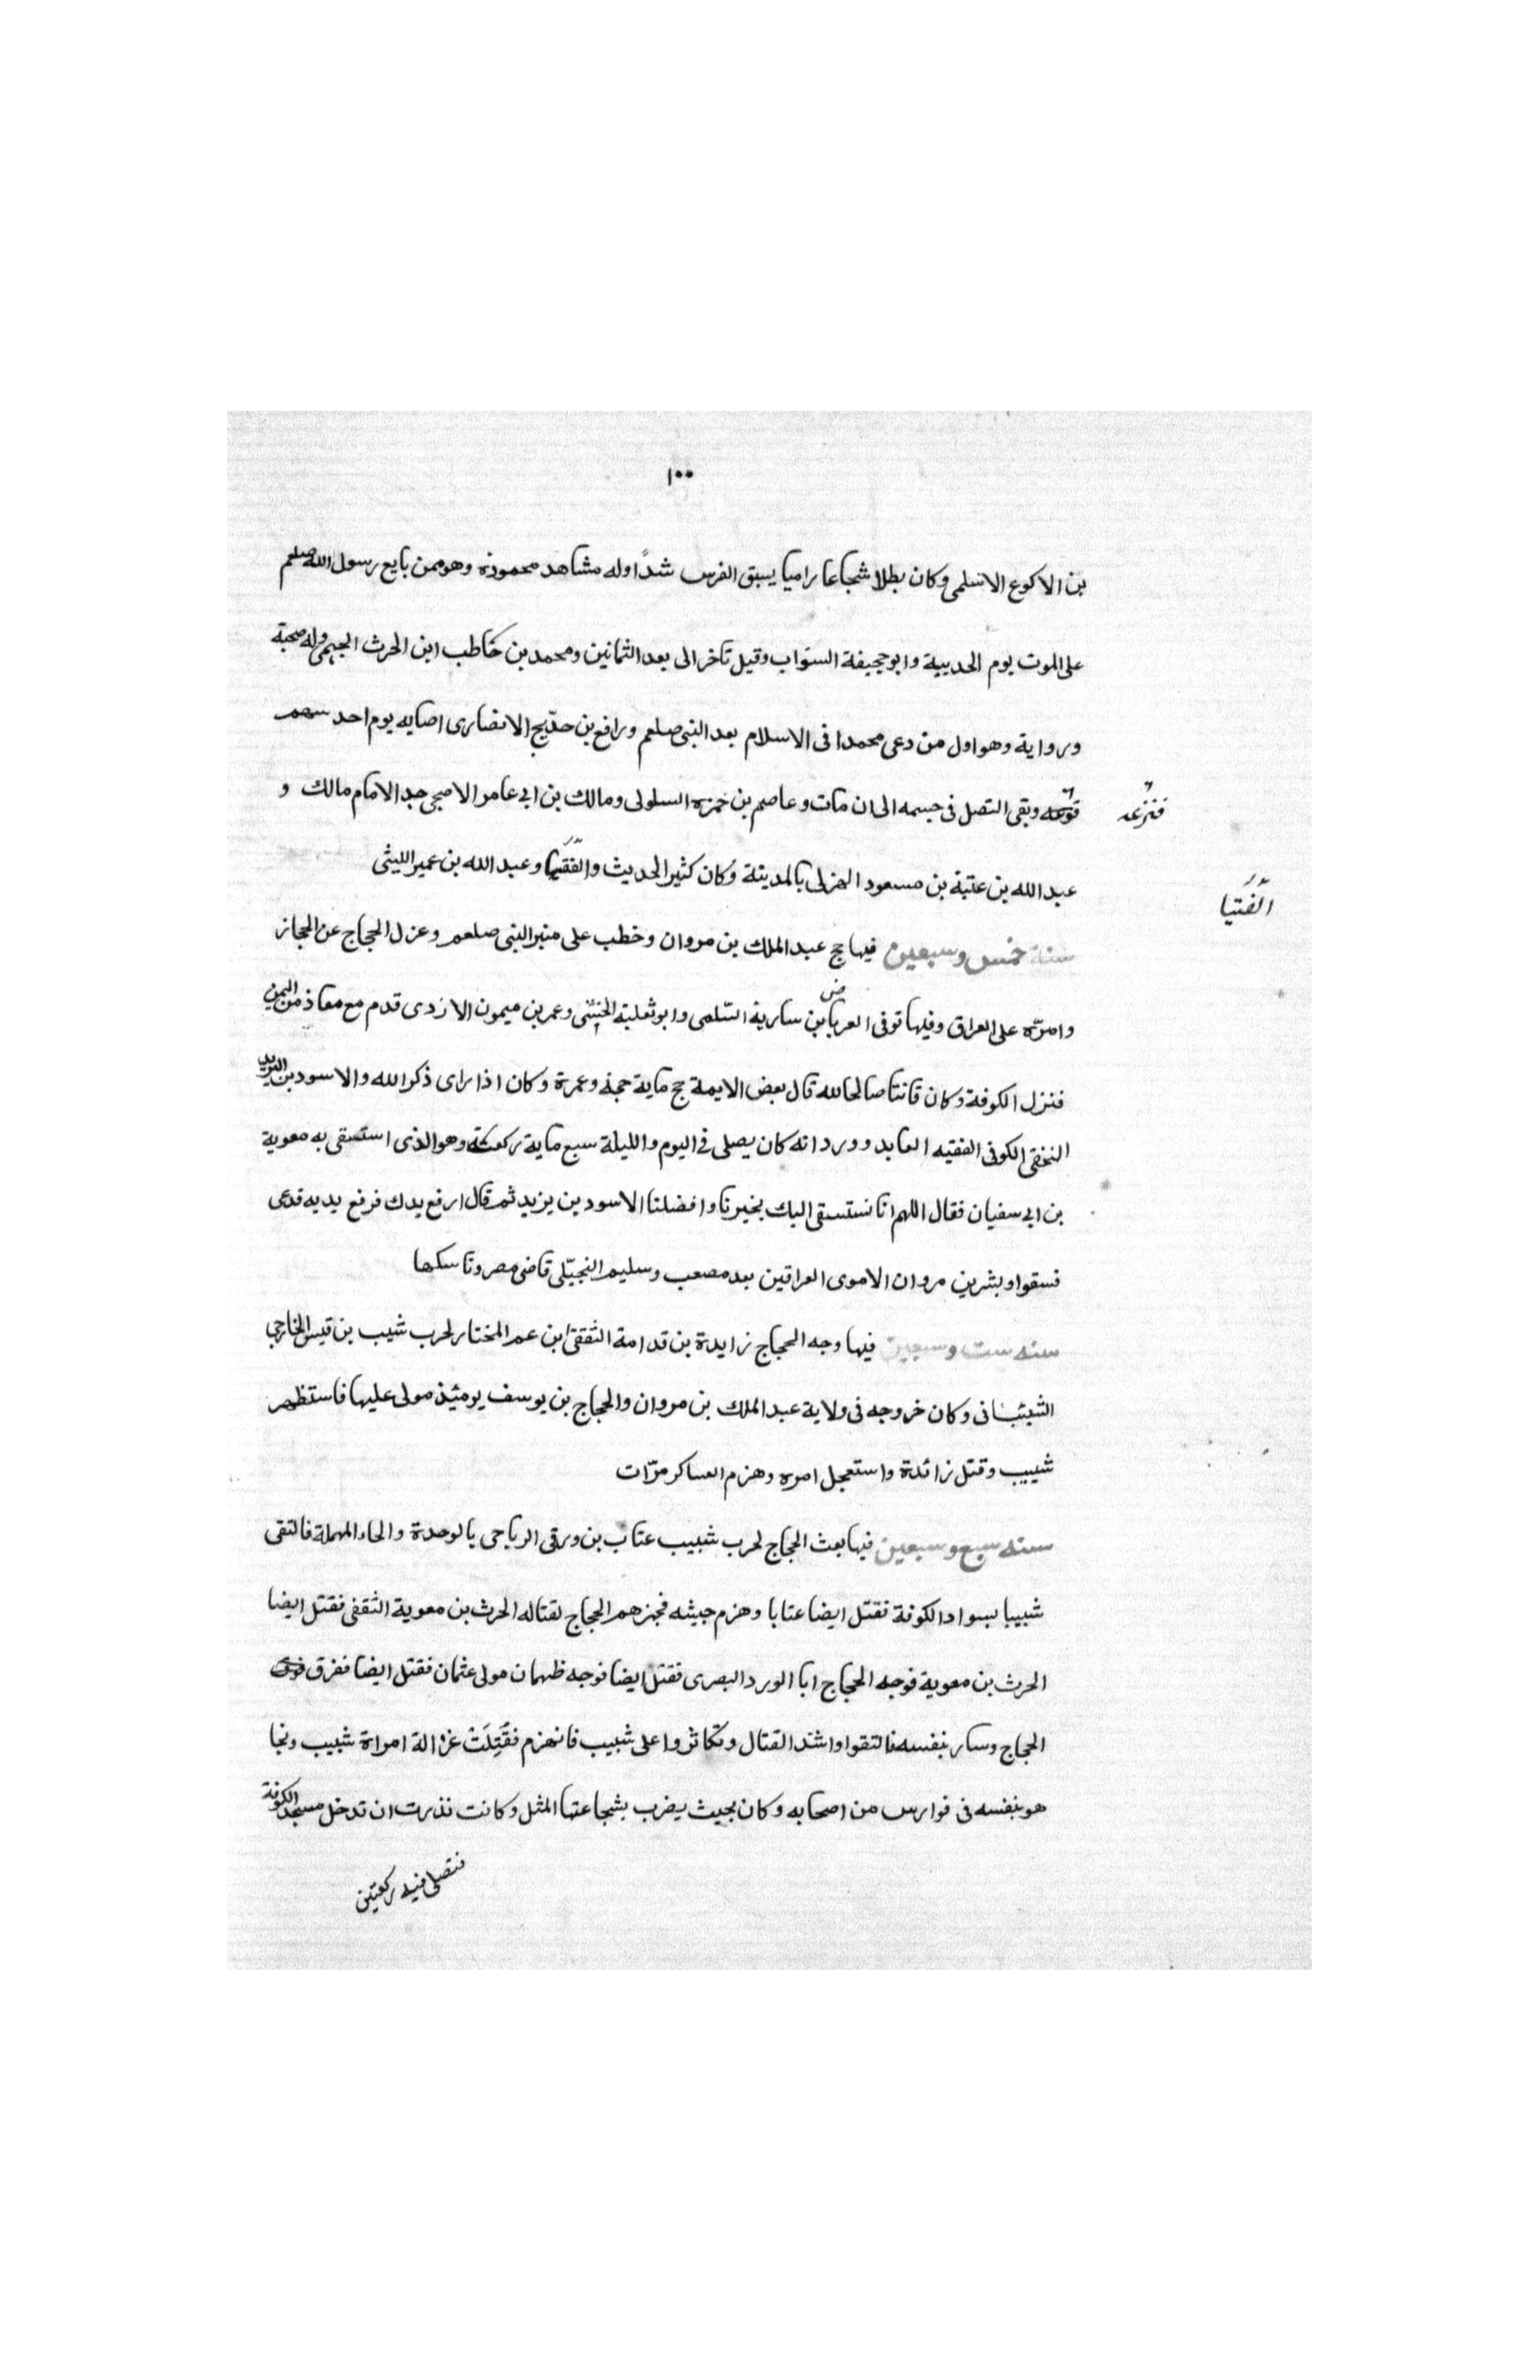 ١٠٠
بن الاكوع الاسلمى وكان بطلا شجاعا راميا يسبق الفرس شدًا وله مشاهد محموده وهو ممن بايع رسول الله صلعم
على الموت يوم الحديبية وابو جحيفة السواب وقيل تاخر الى بعد الثمانين ومحمد بن حاطب ابن الحرث الجمحى وله صحبة
ورواية وهو اول من دعى محمدا فى الاسلام بعد النبى صلعم ورافع بن خديج الانصارى اصابه يوم احد سهم
فنزعه
وبقى النصل فى جسمه الى ان مات وعاصم بن حمزه السلولى ومالك بن ابى عامر الاصبحى جد الامام مالك و
عبد الله بن عتبة بن مسعود الهزلى بالمدينة وكان كثير الحديث والفقيا وعبد الله بن عمير الليثى
الفتيا
سنة خمس وسبعين فيها حج عبد الملك بن مروان وخطب على منبر النبى صلعم وعزل الحجاج عن الحجاز
وامرّه على العراق وفيها توفى العرباض بن سارية السّلمى وابو ثعلبة الخشنى وعمر بن ميمون الازدى قدم مع معاذ من اليمن
فنزل الكوفة وكان قانتا صالحا لله قال بعض الايمة حج ماية حجة وعمرة وكان اذا راى ذكر الله والاسود بن اليزيد
النخعى الكوفى الفقيه العابد وورد انه كان يصلى فى اليوم والليلة سبع ماية ركعة وهو الذى استسقى به معوية
بن ابى سفيان فقال اللهم انا نستسقى اليك بخيرنا وافضلنا الاسود بن يزيد ثم قال ارفع يدك فرفع يديه فدعى
فسقوا وبشر بن مروان الاموى العراقين بعد مصعب وسليم النجيّلى قاضى مصر وناسكها
سنه ست وسبعين فيها وجه الحجاج زايدة بن قدامة الثقفى ابن عم المختار لحرب شيب بن قيس الخارجى
الشيبانى وكان خروجه فى ولاية عبد الملك بن مروان والحجاج بن يوسف يومئذ مولى عليها فاستظهر
شبيب وقتل زائدة واستعجل امره وهزم العساكر مرّات
سنه سبع وسبعين فيها بعث الحجاج لحرب شبيب عتاب بن ورقى الرياحى بالوحدة والحاء المهملة فالتقى
شبيبا بسواد الكوفة فقتل ايضا عتابا وهزم جيشه فجهزهم الحجاج لقتاله الحرث بن معوية الثقفى فقتل ايضا
الحرث بن معوية فوجه الحجاج ابا الورد البصرى فقتل ايضا فوجه ظهمان مولى عثمان فقتل ايضا ففرق
الحجاج وسار بنفسه فالتقوا واشتد القتال وتكاثروا على شبيب فانهزم فقُتِلَتْ غزالة امراة شبيب ونجا
هو بنفسه فى فوارس من اصحابه وكان بحيث يضرب بشجاعتها المثل وكانت نذرت ان تدخل مسجد الكوفة
فتصلى فيه ركعتين